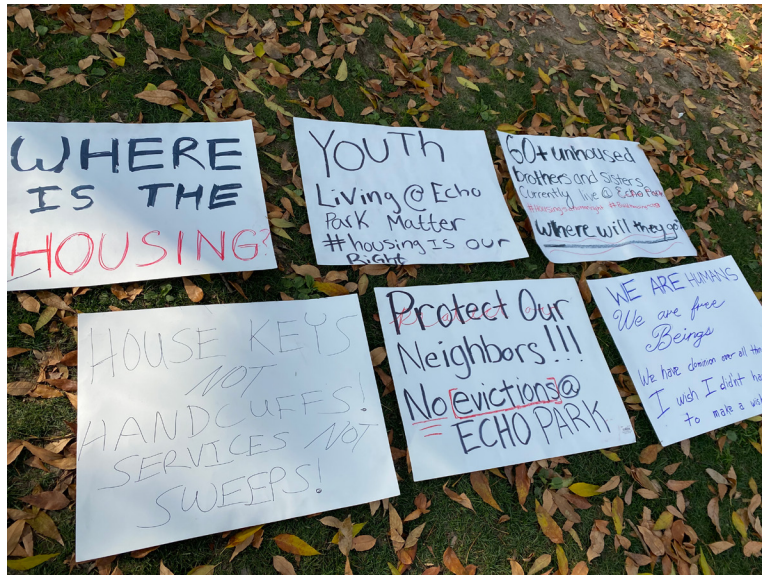 WHERE
IS THE
HOUSING?
YOUTH
Living @ Echo
Park Matter
#housing Is our
Right
60+ unhoused
brothers and sisters
Currently live @ Echo Park
Where will they go?
HOUSE KEYS
NOT
HANDCUFFS!
SERVICES NOT
SWEEPS!
Protect Our
Neighbors!!!
No evictions @
ECHO PARK
WE ARE HUMANS
We are free
Beings
We have dominion over all
I wish I didn't
to make a